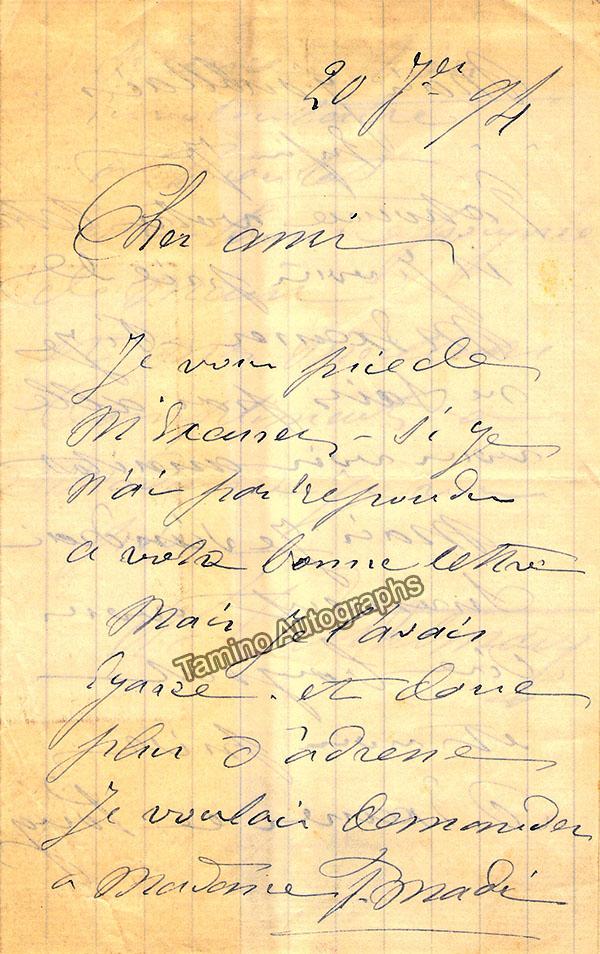 20 7bre 94
Cher ami
Je vous prie de
m'Excuser - si je
n'ai pas repondu
a votre bonne lettre
Mais Je l'avais
Egaree. et donc
plus d'adresse
Je voulais demander
a Madame
Tamino Autographs